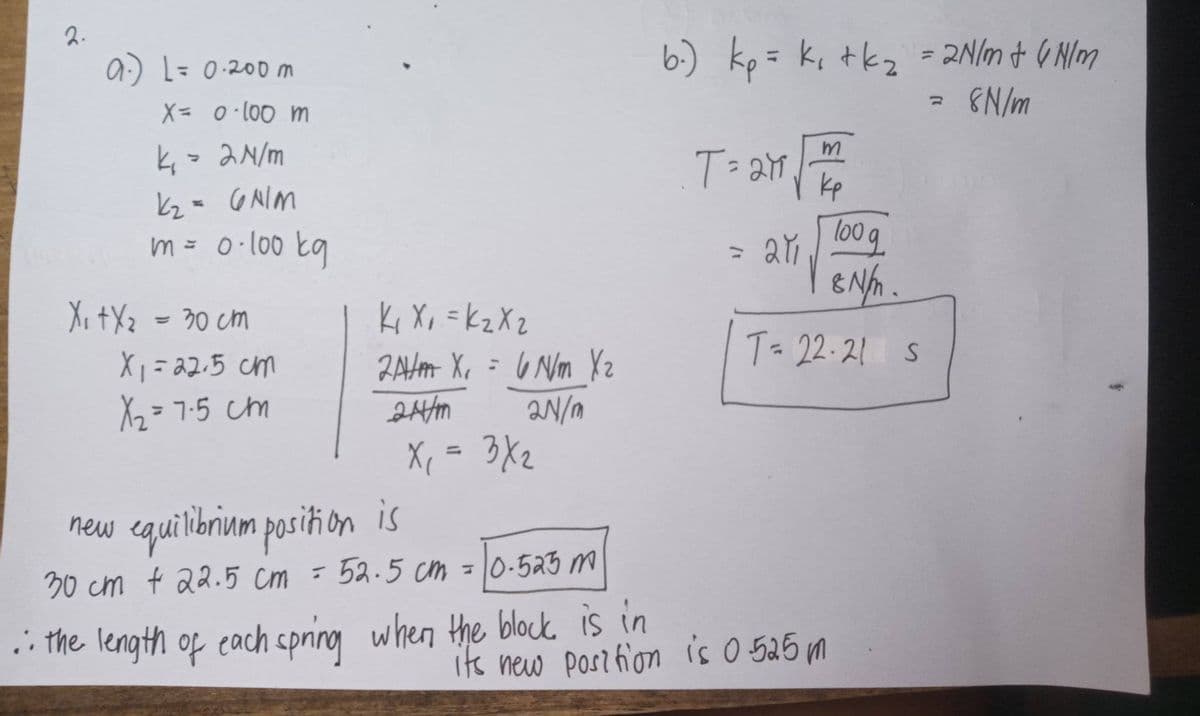 2.
a.) L = 0.200 m
X = 0.100 m
k₁ = 2N/m
k₂ = 6N/m
m = 0.100 kg
X₁ + X₂ = 30 cm
X₁ = 22.5 cm
X₂ = 7.5 cm
k₁ X₁ = k₂ X₂
2N/m X₁ = 6 N/m X₂
2N/m 2N/m
X₁ = 3X₂
new equilibrium position is
30 cm + 22.5 cm = 52.5 cm = 0.525 m
∴ the length of each spring when the block is in
its new position is 0.525 m
b.) kp = k₁ + k₂ = 2N/m + 6 N/m
= 8N/m
T = 2π √ m / kp
= 2π √ 100g / 8N/m.
T = 22.21 s